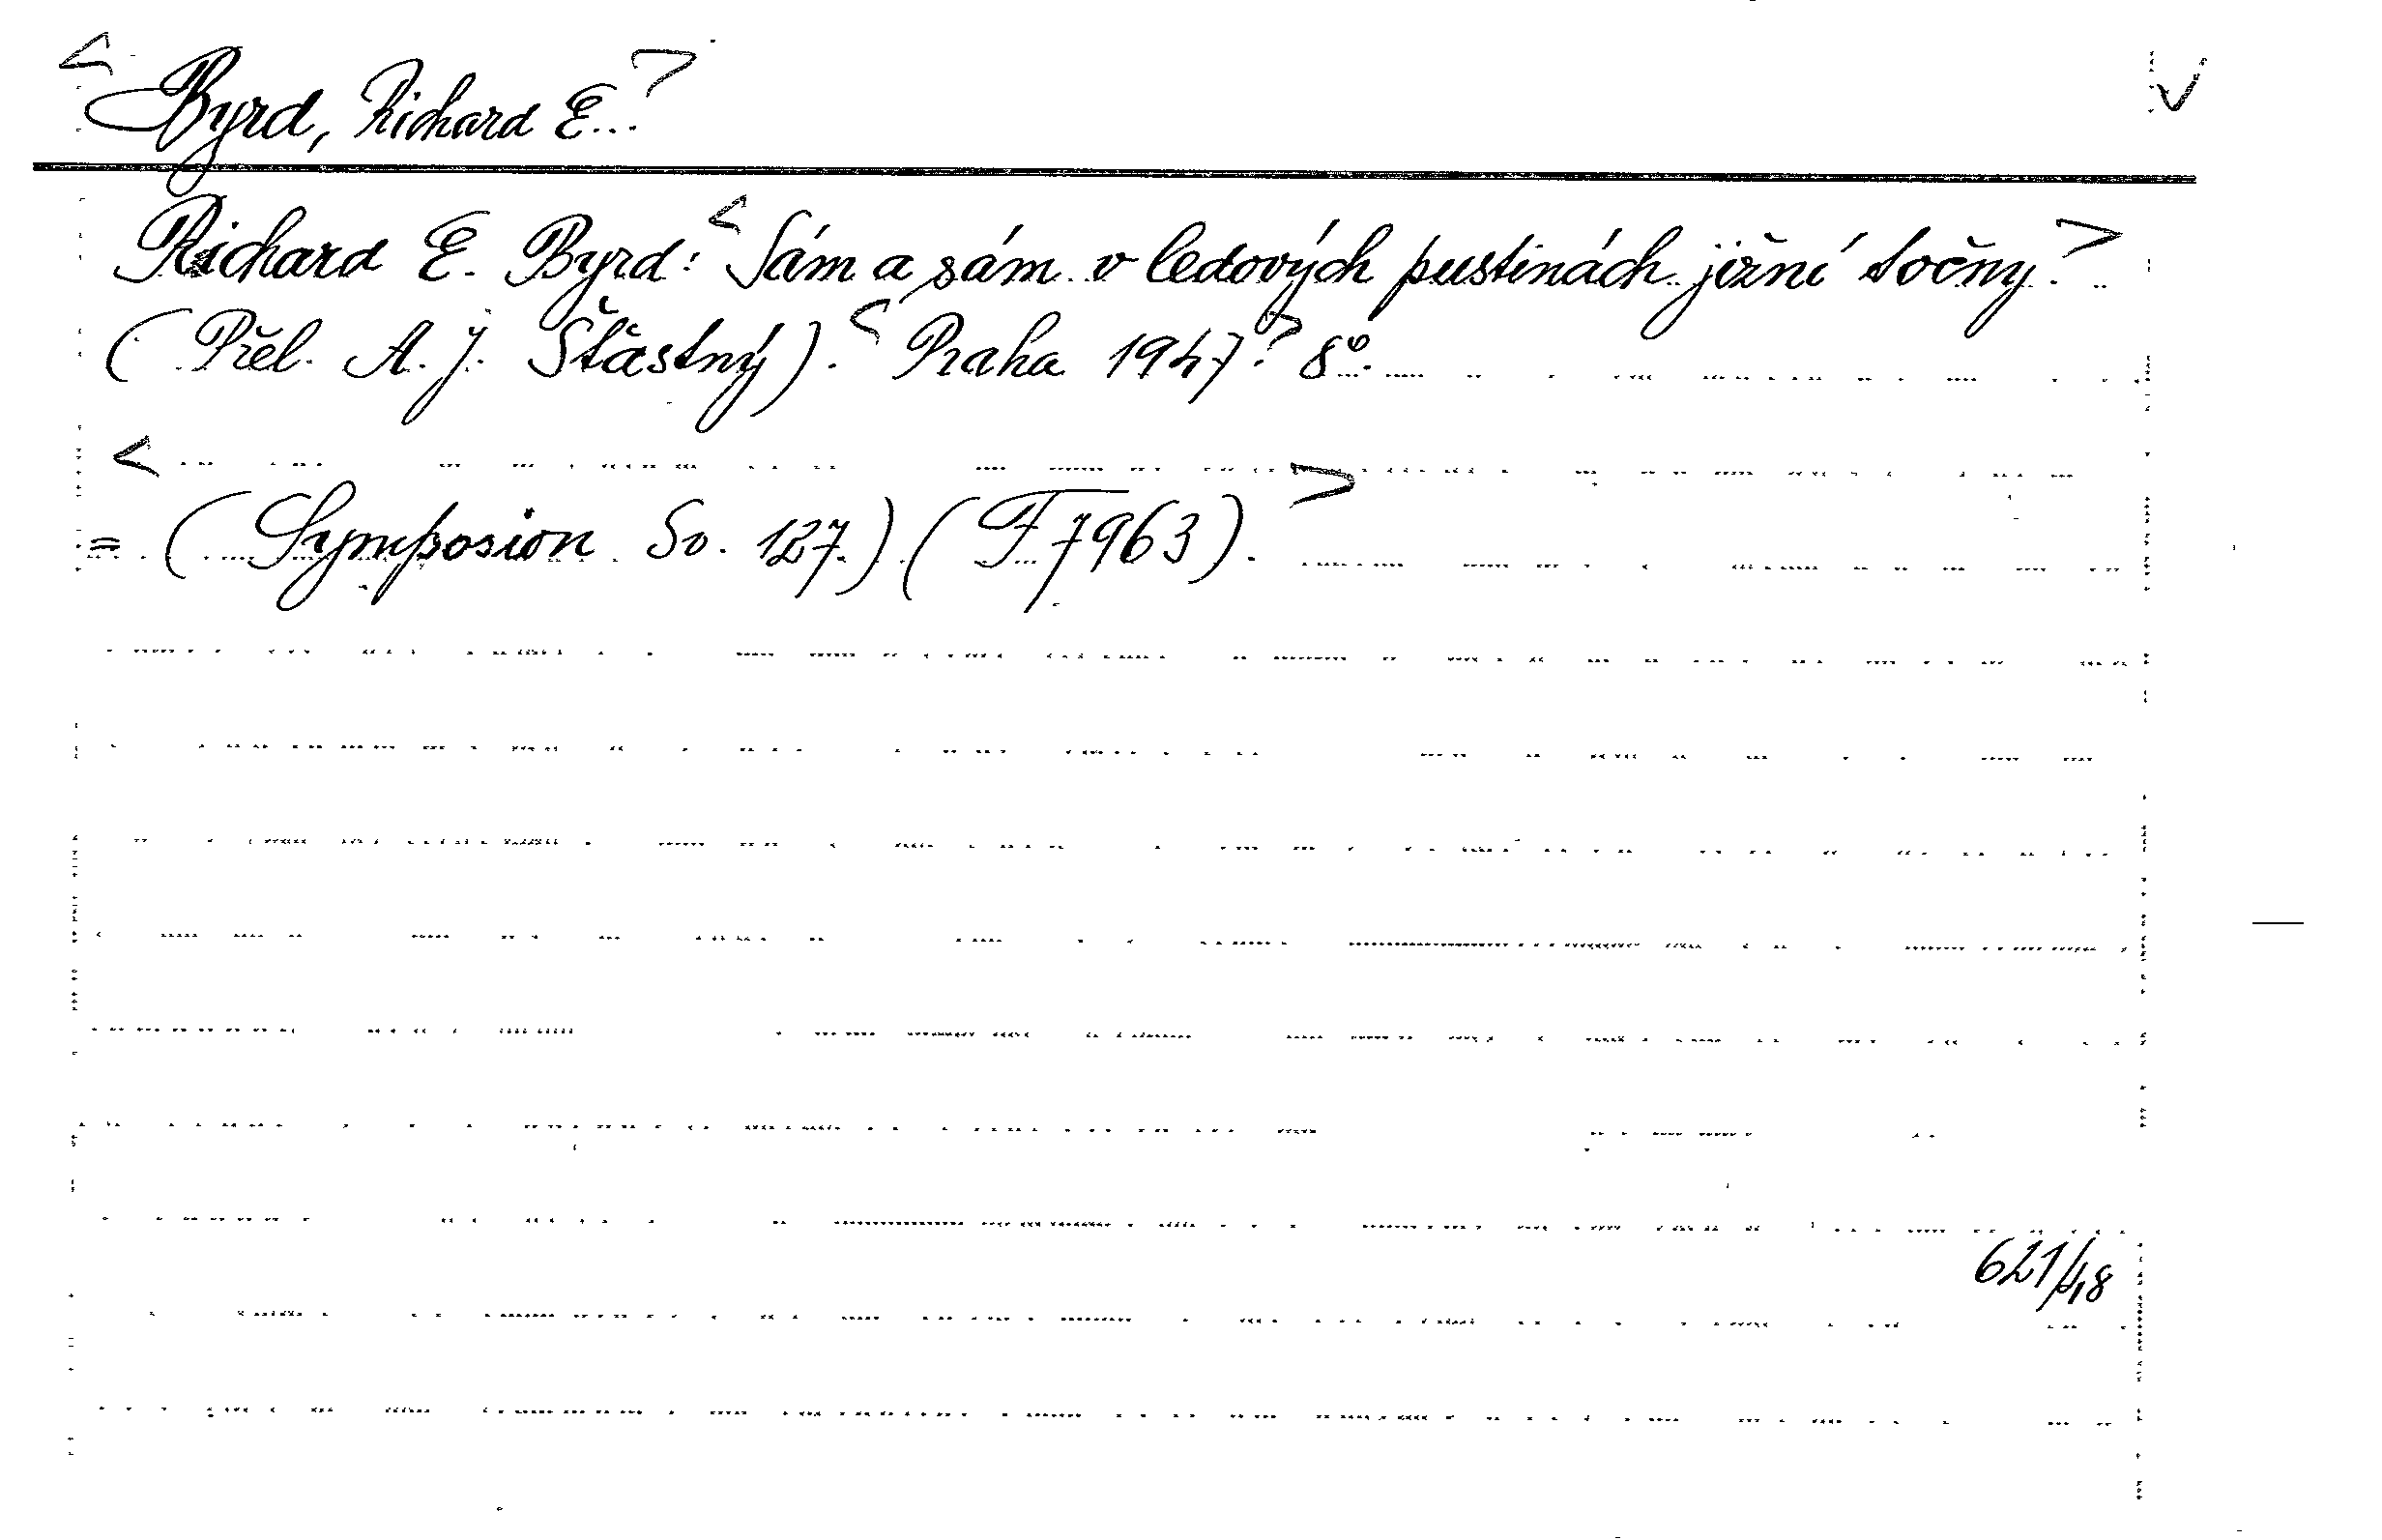 <Byrd, Richard E..> √
Richard E. Byrd: <Sám a sám v ledových pustinách jižní točny.>
(Přel. A. J. Šťastný). <Praha 1947> 8°.
<= (Symposion Sv. 127.) (F 7963).>
621/48